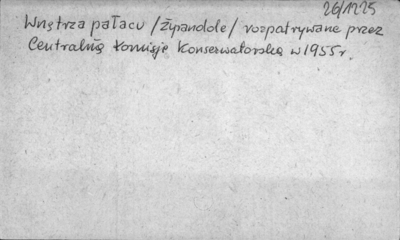 26/1225
Wnętrza pałacu /żyrandole/ rozpatrywane przez
Centralną Komisję Konserwatorską w 1955 r.